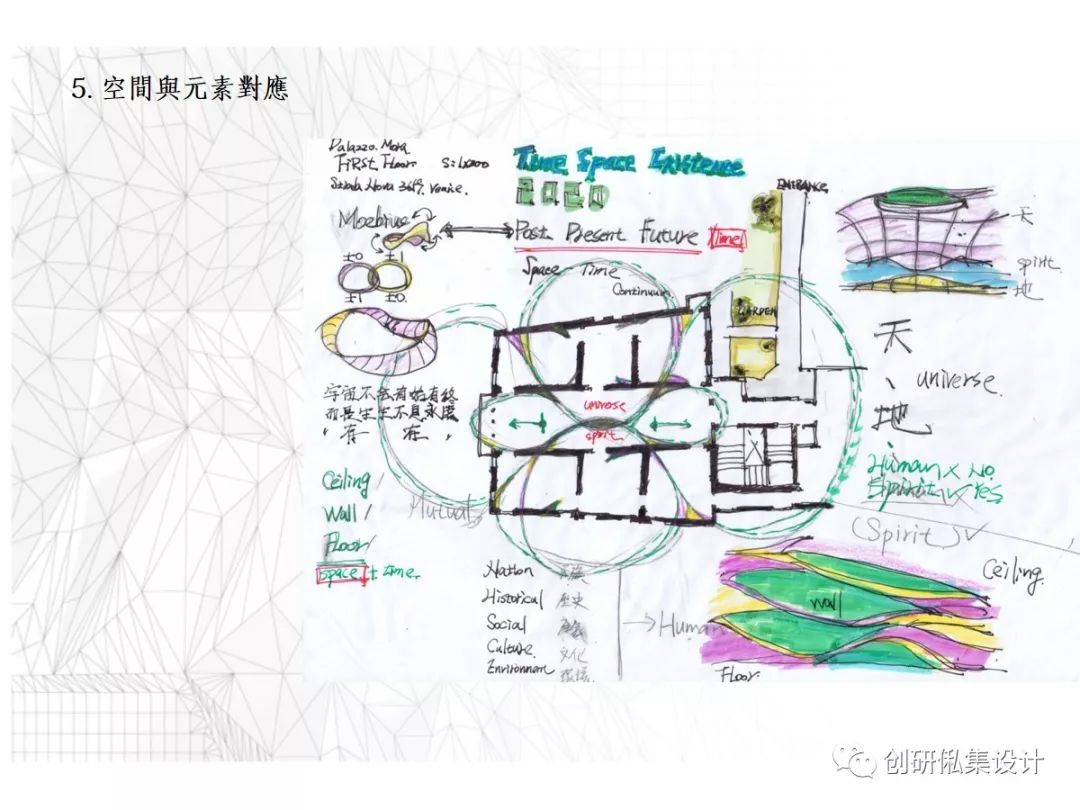 5. 空間與元素對應
Palazzo Mora
FIRST Floor S:1x200
Strada Nova 3659. Venice.
Time Space Existence
2020
ENTRANCE
Moebius
Past Present Future Time
±0 ±1
±1 ±0
Space-Time
Continuum
GARDEN
天
spirit
地
universe
spirit
天、地、
universe
宇宙不會有始有終
存在，
Ceiling/
Wall/
Floor/
Space + time.
Mutual
Human x No
Spirit ✓ Yes
(Spirit) ✓
Nation
Historical 歷史
Social
Culture. 文化
Environment 環境
→ Human
Ceiling
Wall
Floor.
创研俬集设计